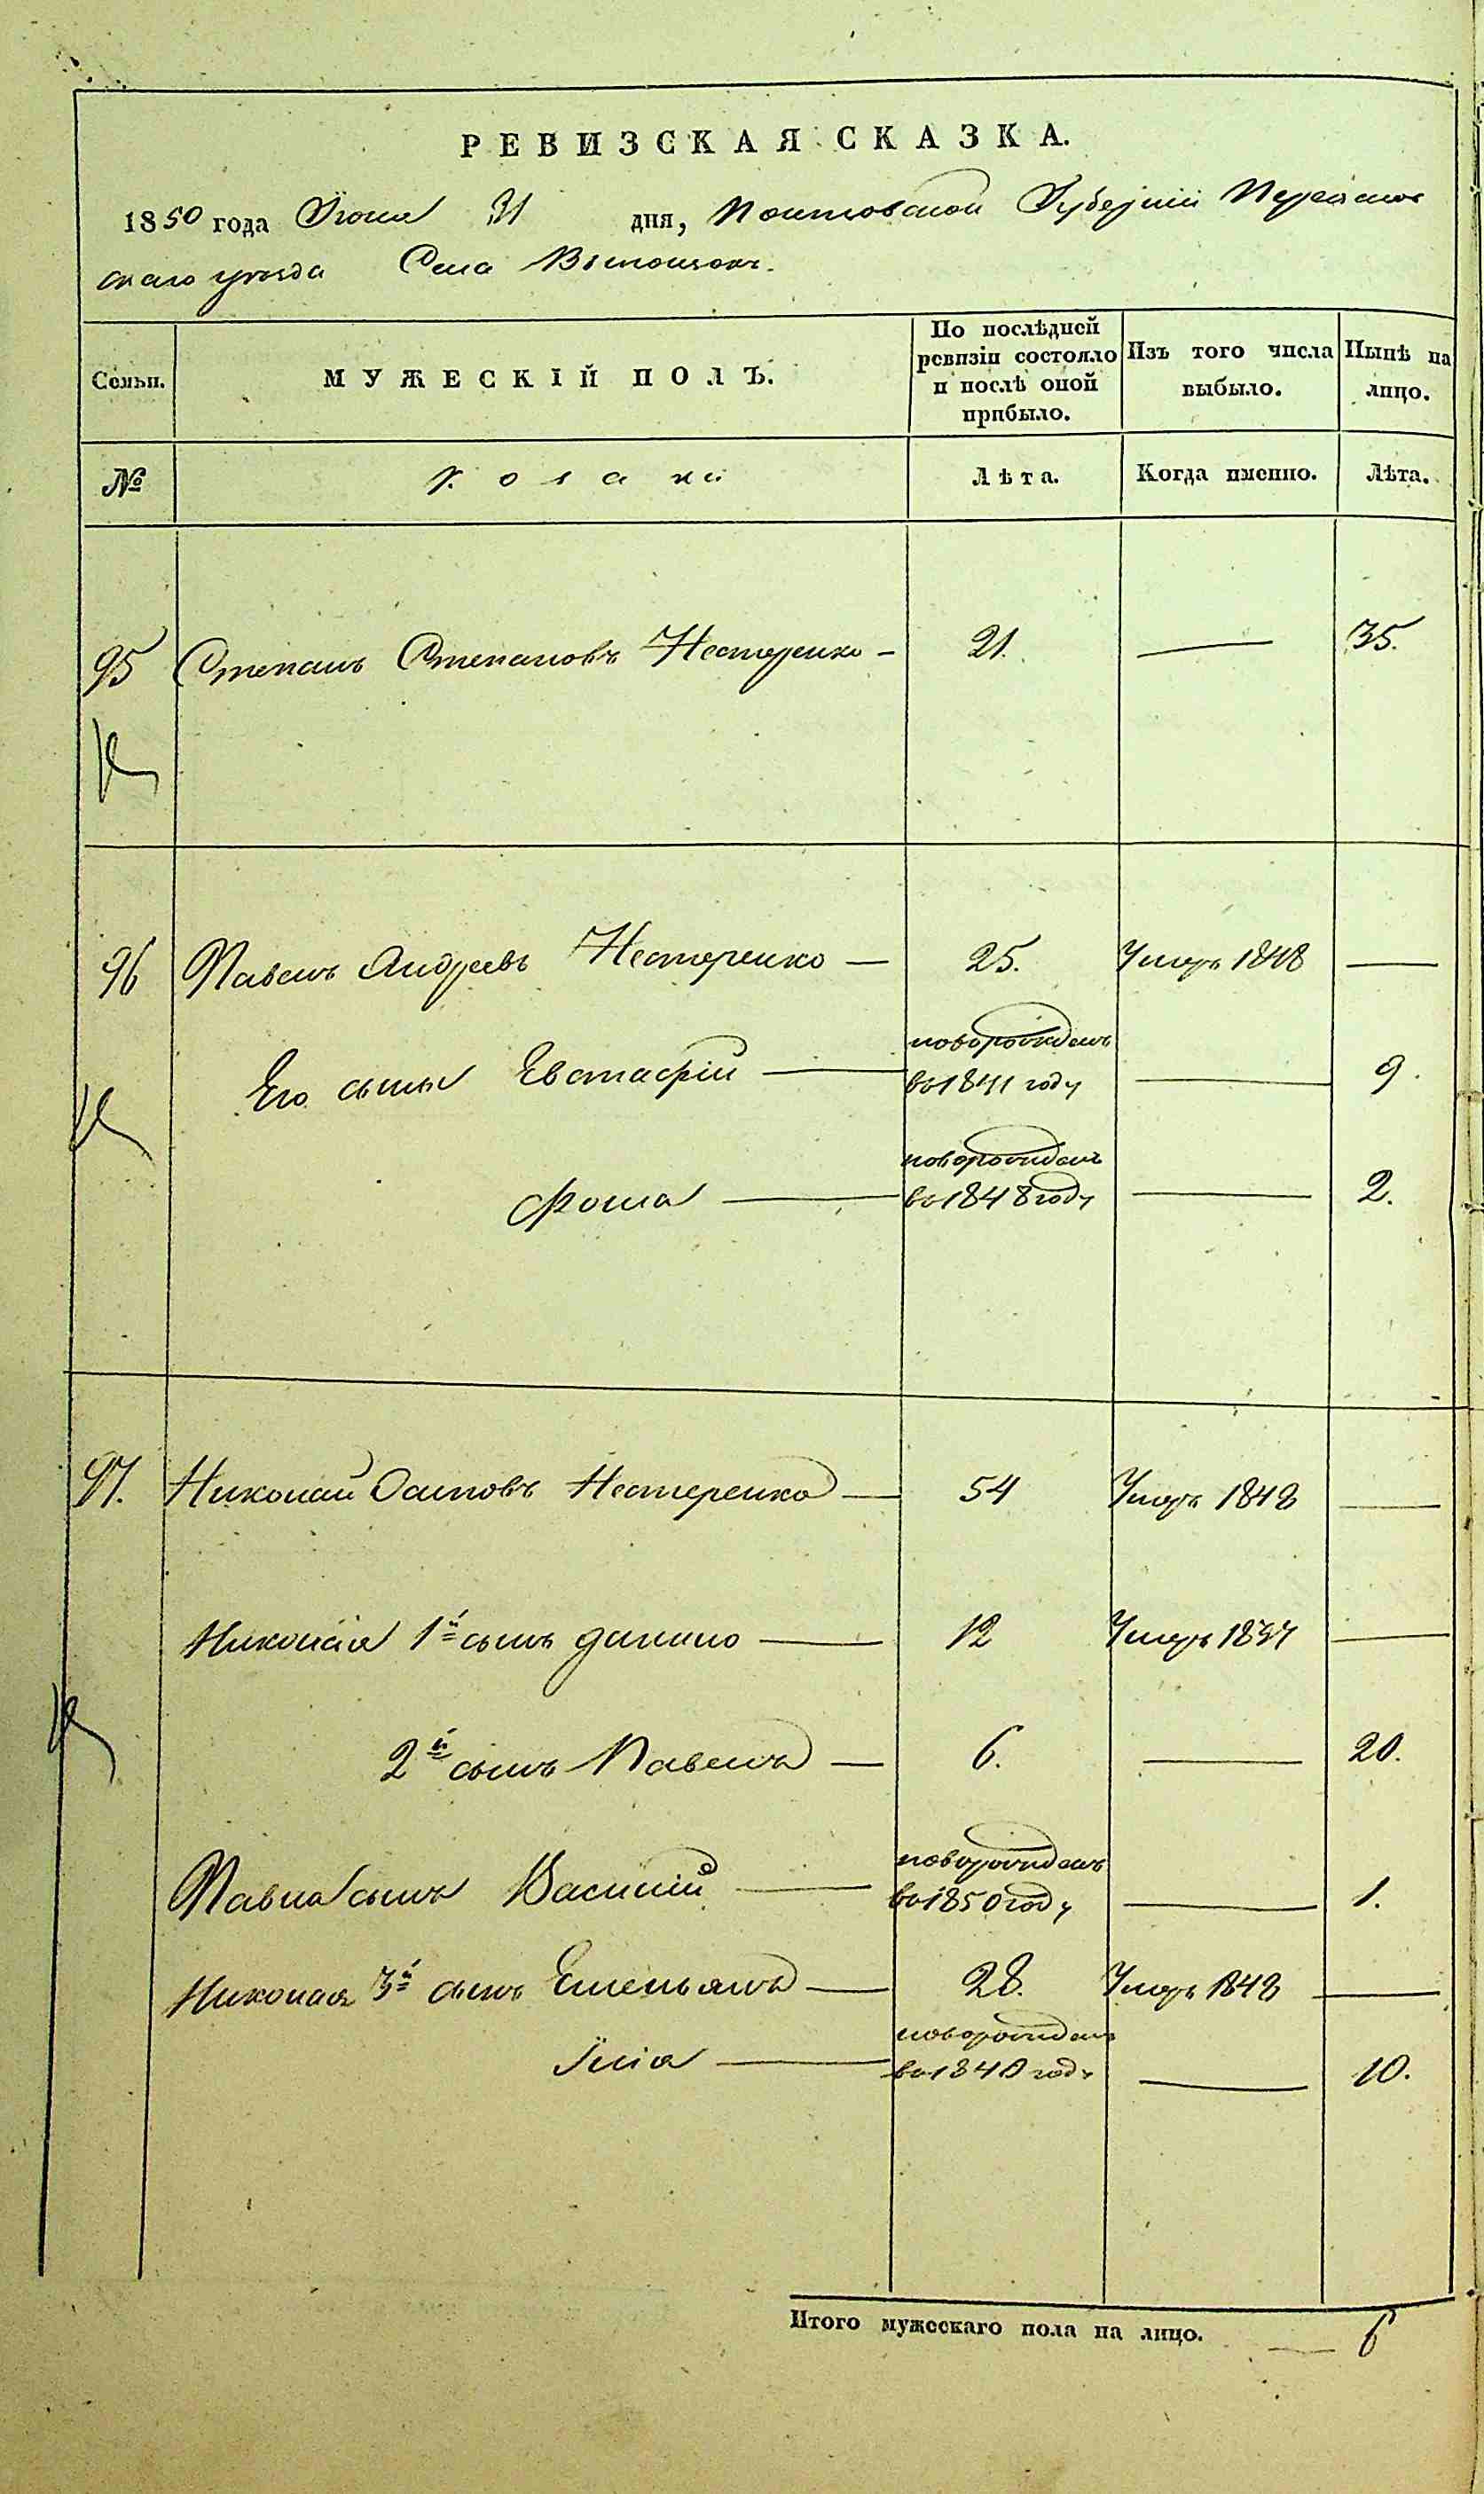 РЕВИЗСКАЯ СКАЗКА.
1850 года Іюня 31 дня, Полтавской Губерніи Переяслов
скаго уѣзда Села
Семьи. МУЖЕСКІЙ ПОЛЪ. По послѣдней ревизіи состояло и послѣ оной прибыло. Изъ того числа выбыло. Нынѣ на лицо.
№ Козаки Лѣта. Когда именно. Лѣта.
95 Степанъ Степановъ Нестеренко — 21. — 35.
96 Павелъ Андреевъ Нестеренко — 25. Умеръ 1848 —
новорожденъ
Его сынъ Евстафій — во 1841 году — 9.
новорожденъ
Фома — во 1848 году — 2.
97. Николай Осиповъ Нестеренко — 54 Умеръ 1848 —
Николая 1й сынъ Данило — 12 Умеръ 1837 —
2й сынъ Павелъ — 6. — 20.
новорожденъ
Павла сынъ Василій — во 1850 году — 1.
Николая 3й сынъ Емельянъ — 28. Умеръ 1848 —
новорожденъ
Илія — во 1840 году — 10.
Итого мужескаго пола на лицо. — 6